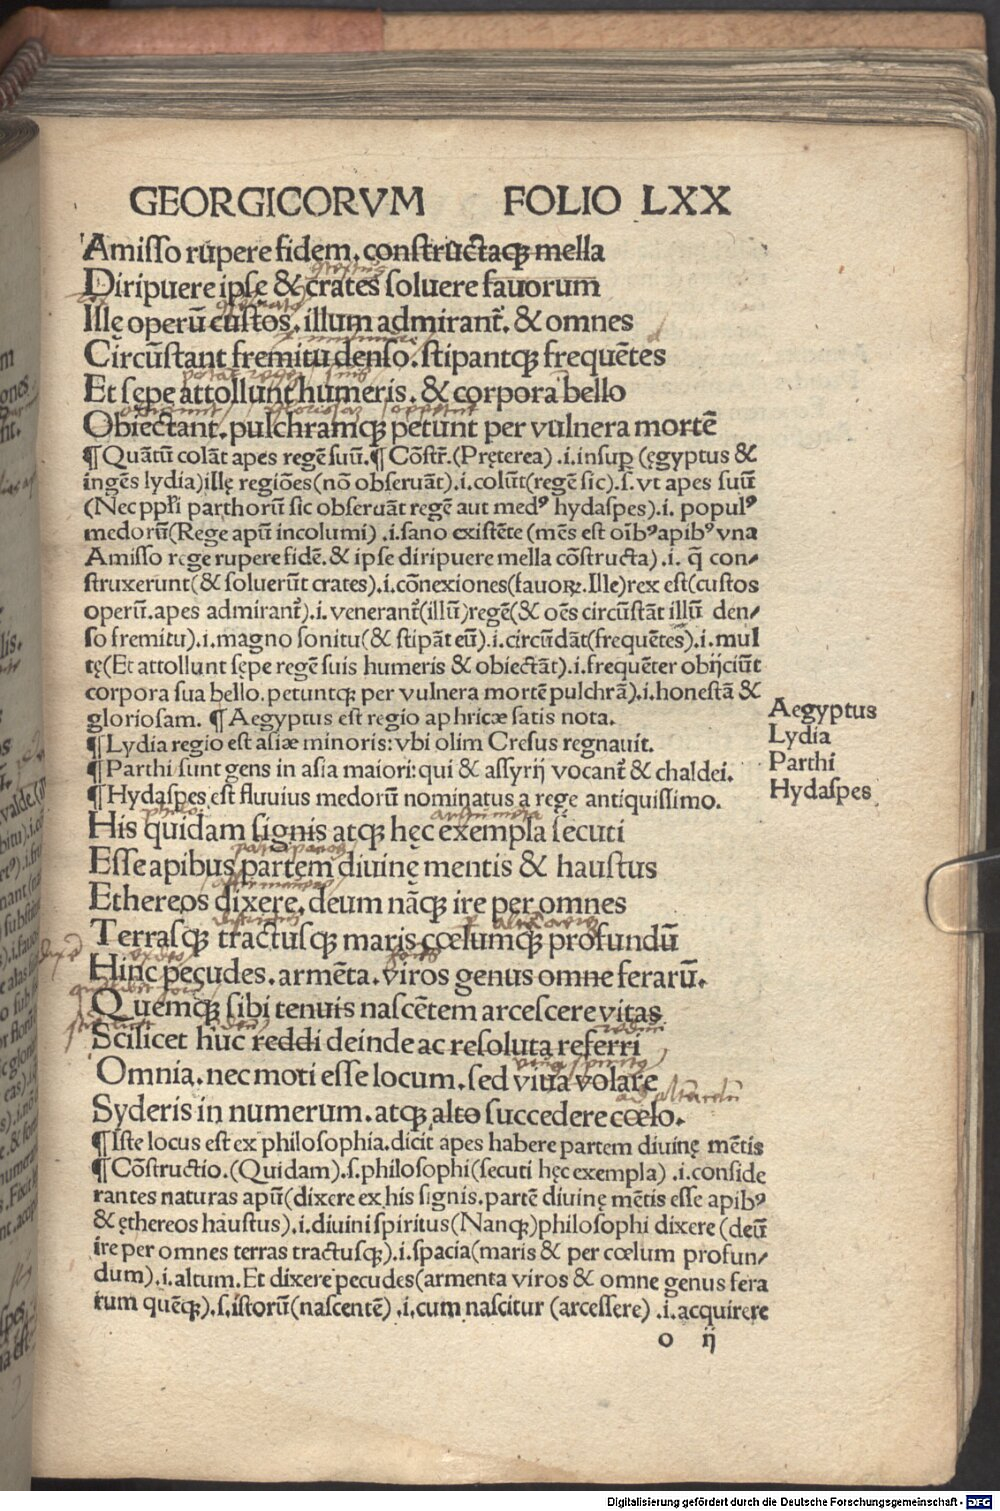 GEORGICORVM FOLIO LXX
Amisso rupere fidem. constructaqꝫ mella
Diripuere ipse & crates soluere fauorum
Illę operū custos. illum admirant̃. & omnes
Circūstant fremitu denso. stipantqꝫ frequētes
Et sepe attollunt humeris. & corpora bello
Obiectant. pulchramqꝫ petunt per vulnera mortē
¶Quātū colāt apes regē suū.¶Cōstr̃.(Pręterea) .i.insuꝑ (ęgyptus &
ingēs lydia)illę regiōes(nō obseruāt).i.colūt(regē sic).s.vt apes suū
(Nec ppl̃i parthorū sic obseruāt regē aut medꝰ hydaspes).i. populꝰ
medorū(Rege apū incolumi) .i.sano existēte (mēs est oībꝰapibꝰ vna
Amisso rege rupere fidē. & ipse diripuere mella cōstructa).i. q̄ con-
struxerunt(& soluerūt crates).i.cōnexiones(fauoꝝ.Ille)rex est(custos
operū.apes admirant̃).i. venerant̃(illū)regē(& oēs circūstāt illū den-
so fremitu).i.magno sonitu(& stipāt eū).i.circūdāt(frequētes).i.mul
tę(Et attollunt sępe regē suis humeris & obiectāt).i.frequēter obijciūt
corpora sua bello.petuntqꝫ per vulnera mortē pulchrā).i.honestā &
gloriosam. ¶Aegyptus est regio aphricæ satis nota.
¶Lydia regio est asiæ minoris:vbi olim Cresus regnauit.
¶Parthi sunt gens in asia maiori:qui & assyrij vocant̃ & chaldei.
¶Hydaspes est fluuius medorū nominatus a rege antiquissimo.
Aegyptus
Lydia
Parthi
Hydaspes
His quidam signis atqꝫ hęc exempla secuti
Esse apibus partem diuinę mentis & haustus
Ethereos dixere. deum nāqꝫ ire per omnes
Terrasqꝫ tractusqꝫ maris cœlumqꝫ profundū
Hinc pecudes. armēta. viros genus omne ferarū.
Quemqꝫ sibi tenuis nascētem arcescere vitas
Scilicet huc reddi deinde ac resoluta referri
Omnia. nec moti esse locum. sed viua volare
Syderis in numerum. atqꝫ alto succedere cœlo.
¶Iste locus est ex philosophia.dicit apes habere partem diuinę mētis
¶Cōstructio.(Quidam).s.philosophi(secuti hęc exempla) .i.conside
rantes naturas apū(dixere ex his signis.partē diuinę mētis esse apibꝰ
& ęthereos haustus).i.diuini spiritus(Nanqꝫ)philosophi dixere (deū
ire per omnes terras tractusqꝫ).i.spacia(maris & per cœlum profun-
dum).i.altum.Et dixere pecudes(armenta viros & omne genus fera
rum quēqꝫ).s.istorū(nascentē) .i.cum nascitur (arcessere) .i.acquirere
o ij
Digitalisierung gefördert durch die Deutsche Forschungsgemeinschaft - DFG